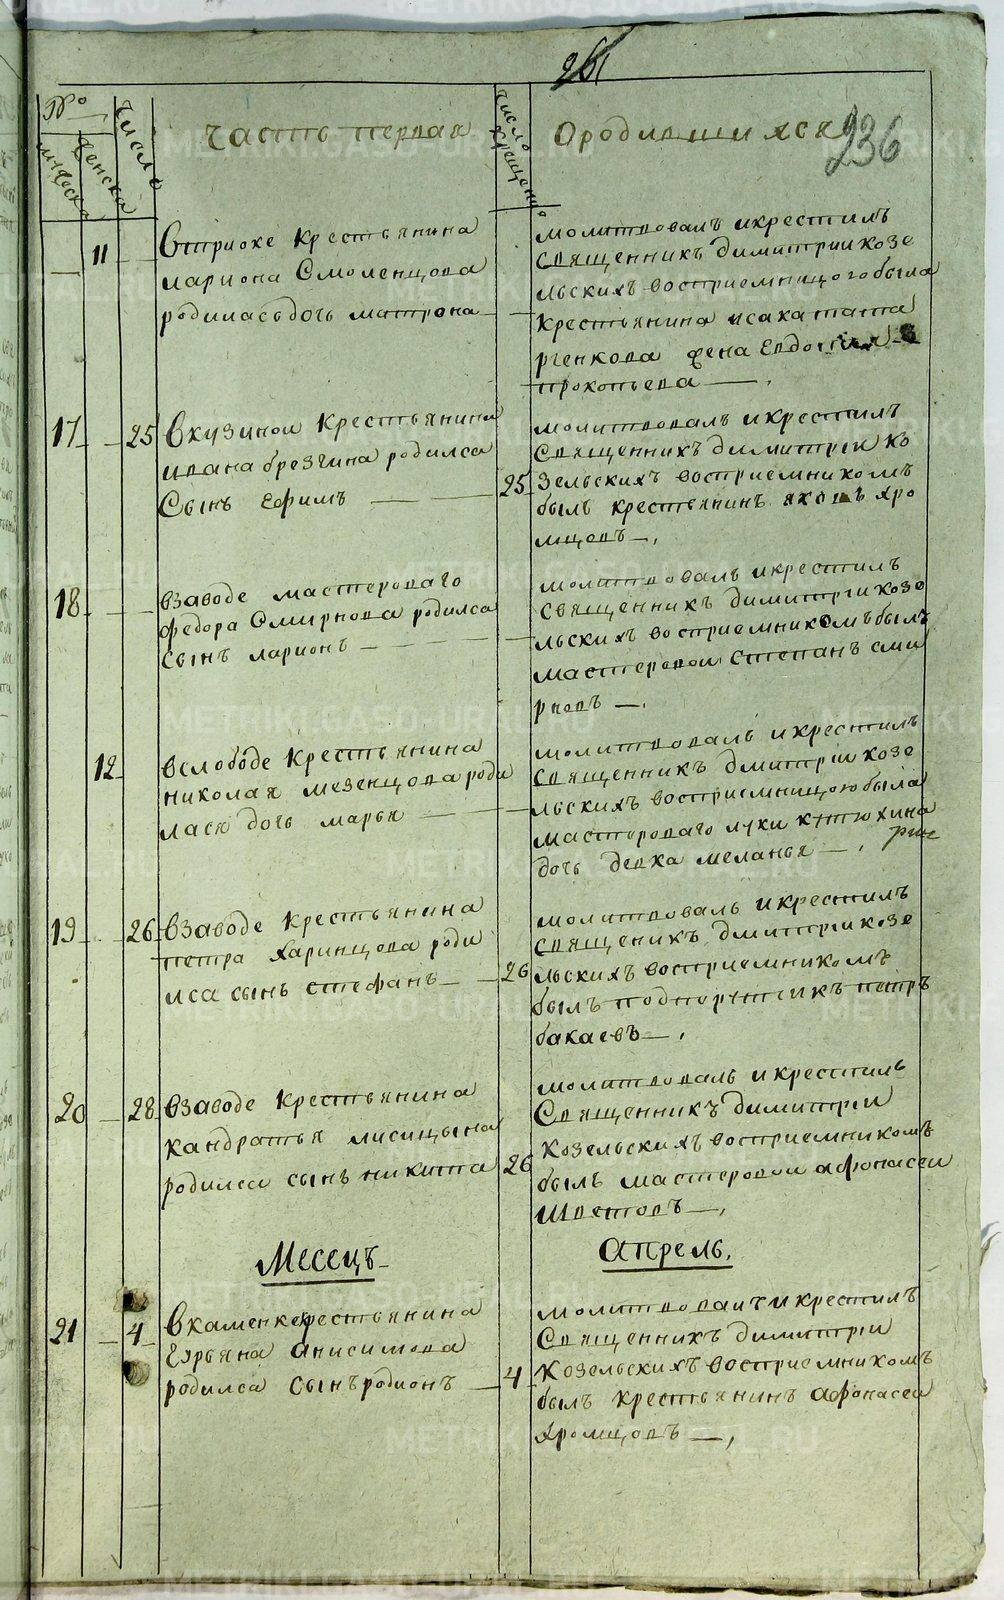 261
236
№
мужеска
женска
число
часть первая
число крещения
Ородившихся
11
Встриоке крестьянина
лариона Смоленцова
родилась дочь матрона
молитвовалъ икрестилъ
Священникъ димитрии козе
льскихъ восприемницого была
крестьянина исака тата
ркенкова жена Евдо
прокопьева
17
25
Вкузинои крестьянина
ивана брезгина родилса
Сынъ Ефимъ
25
молитвовалъ икрестилъ
Священникъ димитрии ко
зельскихъ восприемникомъ
былъ крестьянинъ яковъ хро
мцовъ
18
взаводе мастероваго
федора Смирнова родилса
сынъ ларионъ
молитвовалъ икрестилъ
священникъ димитрии козе
льскихъ восприемникомъ былъ
мастеровои Степанъ сми
рновъ
12
вслободе крестьянина
николая мезенцова роди
лася дочь марья
молитвовалъ икрестилъ
священникъ дмитрии козе
льскихъ восприемницою была
мастероваго луки кутюхина
дочь девка меланья
19
26
взаводе крестьянина
петра харинцова роди
лса сынъ стефанъ
26
молитвовалъ икрестилъ
священикъ дмитрии козе
льскихъ восприемникомъ
былъ подпорутчикъ петръ
бакаевъ
20
28
взаводе крестьянина
кандратья лисицына
родилса сынъ никита
26
молитвовалъ икрестилъ
Священникъ димитрии
козельскихъ восприемникомъ
былъ мастеровои афонасеи
Шветовъ
Месецъ
апрель.
21
4
Вкаменке крестьянина
Гурьяна анисимова
родилса сынъ родионъ
4
молитвовалъ икрестилъ
Священникъ димитрии
козельскихъ восприемникомъ
былъ крестьянинъ афонасеи
хромцовъ